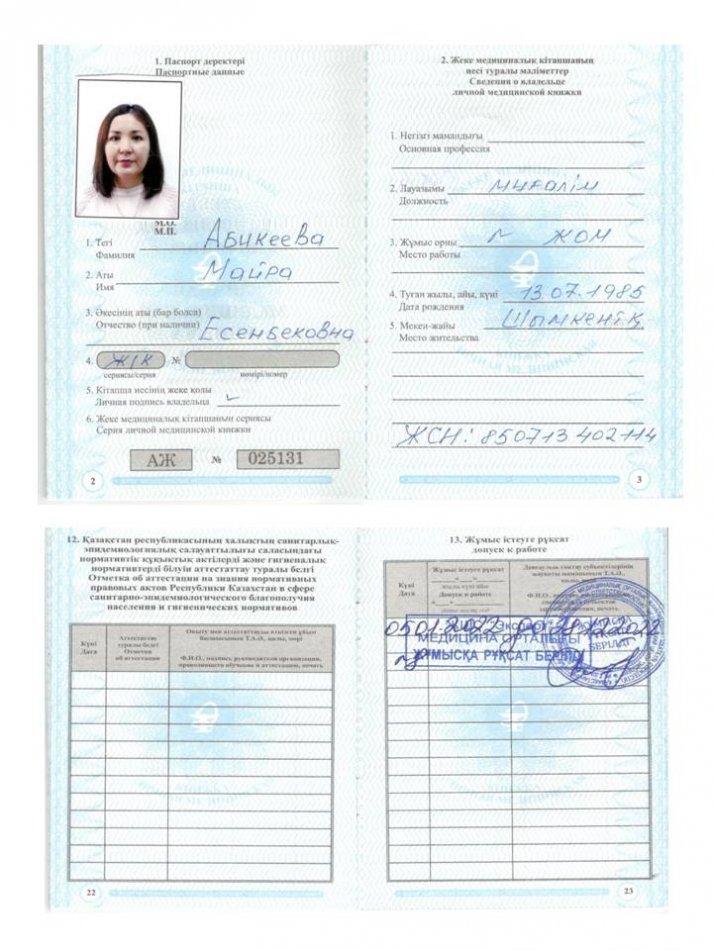 1. Паспорт деректері
Паспортные данные
М.О.
М.П.
1. Тегі
Фамилия
Абикеева
2. Аты
Имя
Майра
3. Әкесінің аты (бар болса)
Отчество (при наличии)
Есенбековна
4. ЖІК №
сериясы/серия нөмірі/номер
5. Кітапша иесінің жеке қолы
Личная подпись владельца
6. Жеке медициналық кітапшаның сериясы
Серия личной медицинской книжки
АЖ № 025131
2
2. Жеке медициналық кітапшаның
иесі туралы мәліметтер
Сведения о владельце
личной медицинской книжки
1. Негізгі мамандығы
Основная профессия
2. Лауазымы
Должность
мұғалім
3. Жұмыс орны
Место работы
ЖОМ
4. Туған жылы, айы, күні
Дата рождения
13.07.1985
5. Мекен-жайы
Место жительства
Шымкент қ
ЖСН: 850713402114
3
12. Қазақстан республикасының халықтың санитарлық-
эпидемиологиялық салауаттылығы саласындағы
нормативтік құқықтық актілерді және гигиеналық
нормативтерді білуін аттестаттау туралы белгі
Отметка об аттестации на знания нормативных
правовых актов Республики Казахстан в сфере
санитарно-эпидемиологического благополучия
населения и гигиенических нормативов
Күні
Дата
Аттестаттау
туралы белгі
Отметка
об аттестации
Ф.И.О., подпись руководителя организации,
проводившего обучение и аттестацию, печать
22
13. Жұмыс істеуге рұқсат
допуск к работе
Күні
Дата
Жұмыс істеуге рұқсат
Допуск к работе
05.01.2022
МЕДИЦИНА ОРТАЛЫҒЫ
ЖҰМЫСҚА РҰҚСАТ БЕРІЛДІ
23